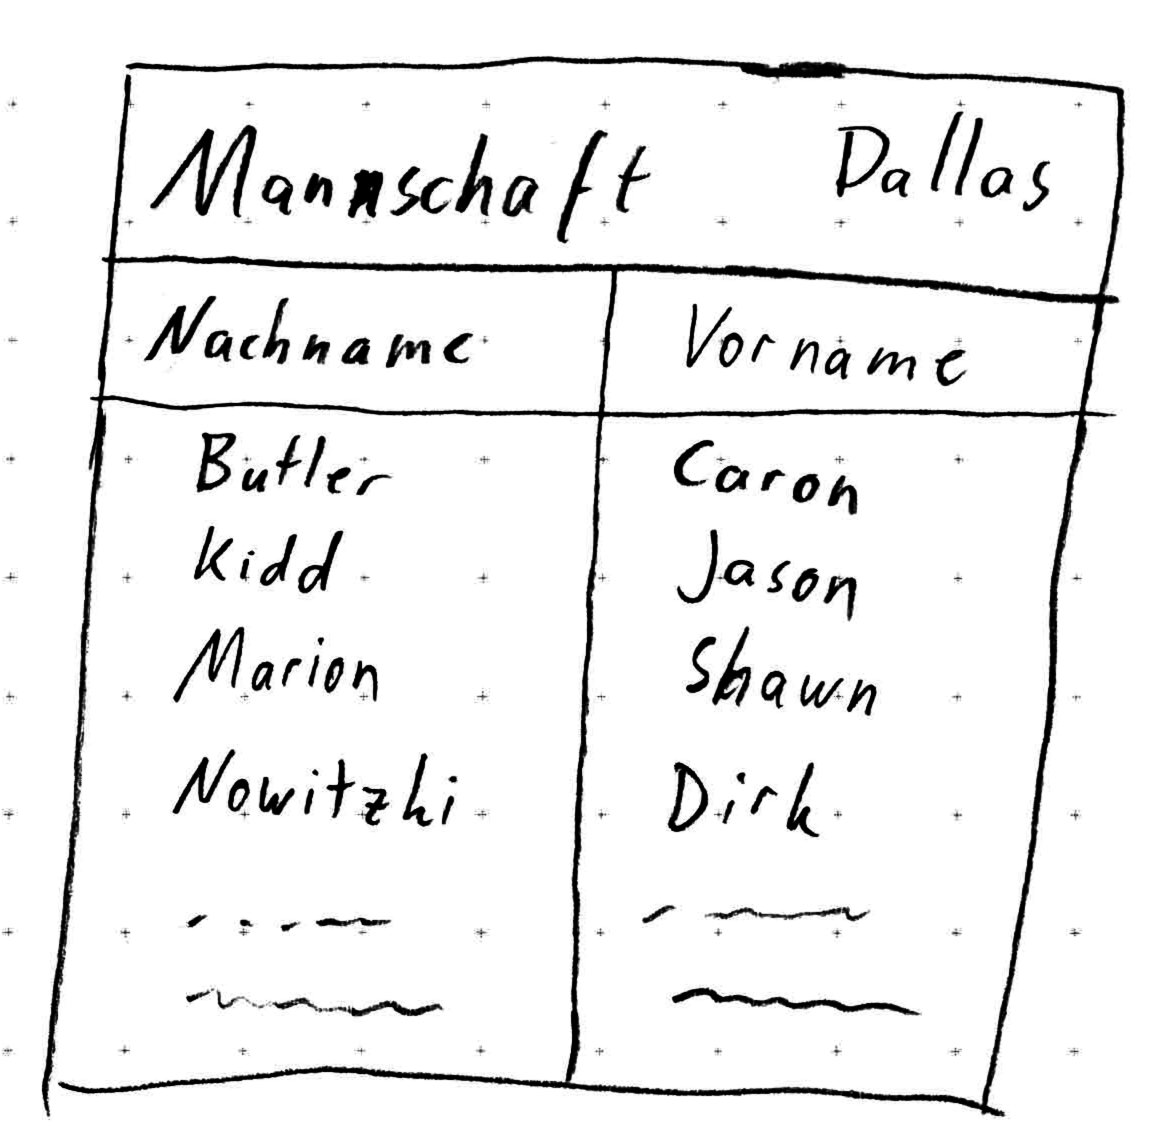 Mannschaft Dallas
Nachname Vorname
Butler Caron
Kidd Jason
Marion Shawn
Nowitzki Dirk